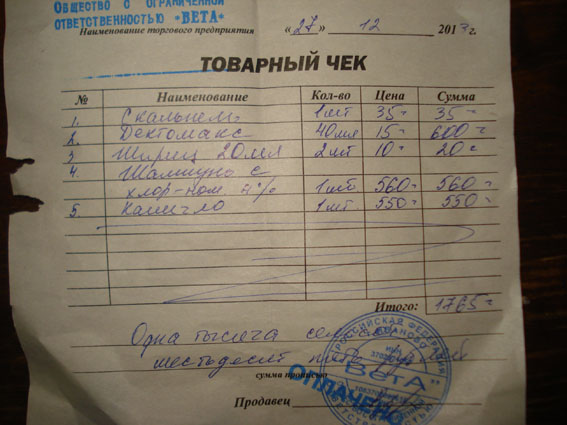 Общество с ограниченной
ответственностью "ВЕТА"
Наименование торгового предприятия
«27» 12 2013г.
ТОВАРНЫЙ ЧЕК
№ Наименование Кол-во Цена Сумма
1. Скальпель 1шт 35- 35-
2. Дектомакс 40мл 15- 600-
3 Шприц 20мл 2шт 10- 20-
4 Шампунь с
хлор-ном. 4% 1шт 560- 560-
5. 1шт 550- 550-
Итого: 1765-
Одна тысяча семьсот
шестьдесят пять рублей
сумма прописью
РОССИЙСКАЯ ФЕДЕРАЦИЯ
ИВАНОВО
ИНН
"ВЕТА"
ОПЛАЧЕНО
Продавец